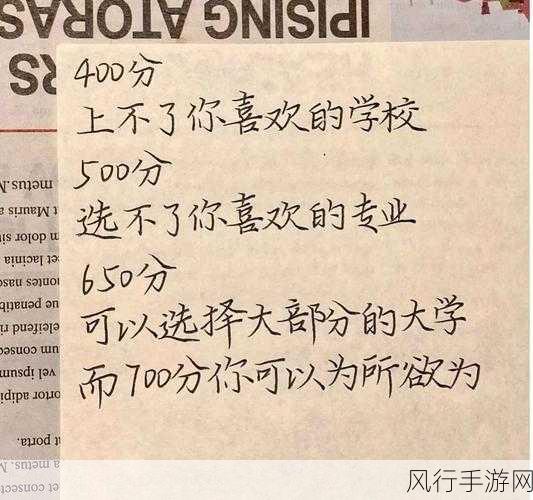 IPISING ATORAS
RS
400分
上不了你喜欢的学校
500分
选不了你喜欢的专业
650分
可以选择大部分的大学
而700分你可以为所欲为
metus. M
t Mauris a
m dolor sit
et lacinia
montes nasc
que penatibu
eleifend
um consec
vel ipsum
ortor adipi
t porta.
a metus.
et consect
风行手游网